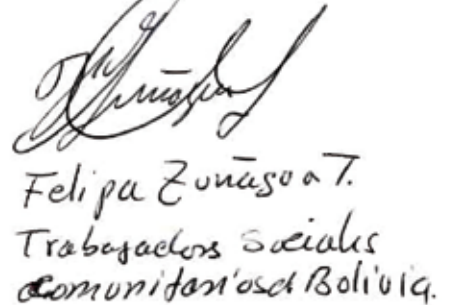 Felipa Zuñagoa T.
Trabajadors Sociales
Comunitariosd Bolivia.